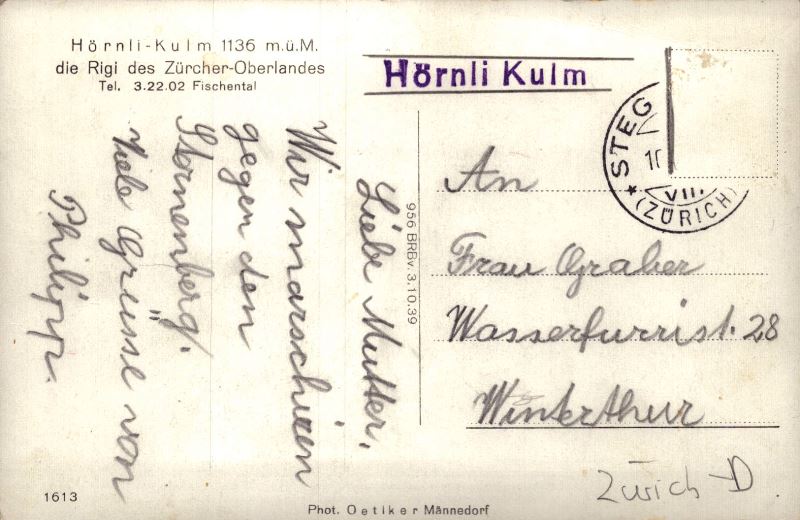 Hörnli-Kulm 1136 m.ü.M.
die Rigi des Zürcher-Oberlandes
Tel. 3.22.02 Fischental
Hörnli Kulm
STEG
10
VIII.
* (ZÜRICH)
Liebe Mutter,
Wir marschieren
gegen den
Sternenberg.
Viele Grüsse von
Philipp.
956 BRBv. 3.10.39
An
Frau Graber
Wasserfurrist. 28
Winterthur
Zürich-D
1613
Phot. Oetiker Männedorf